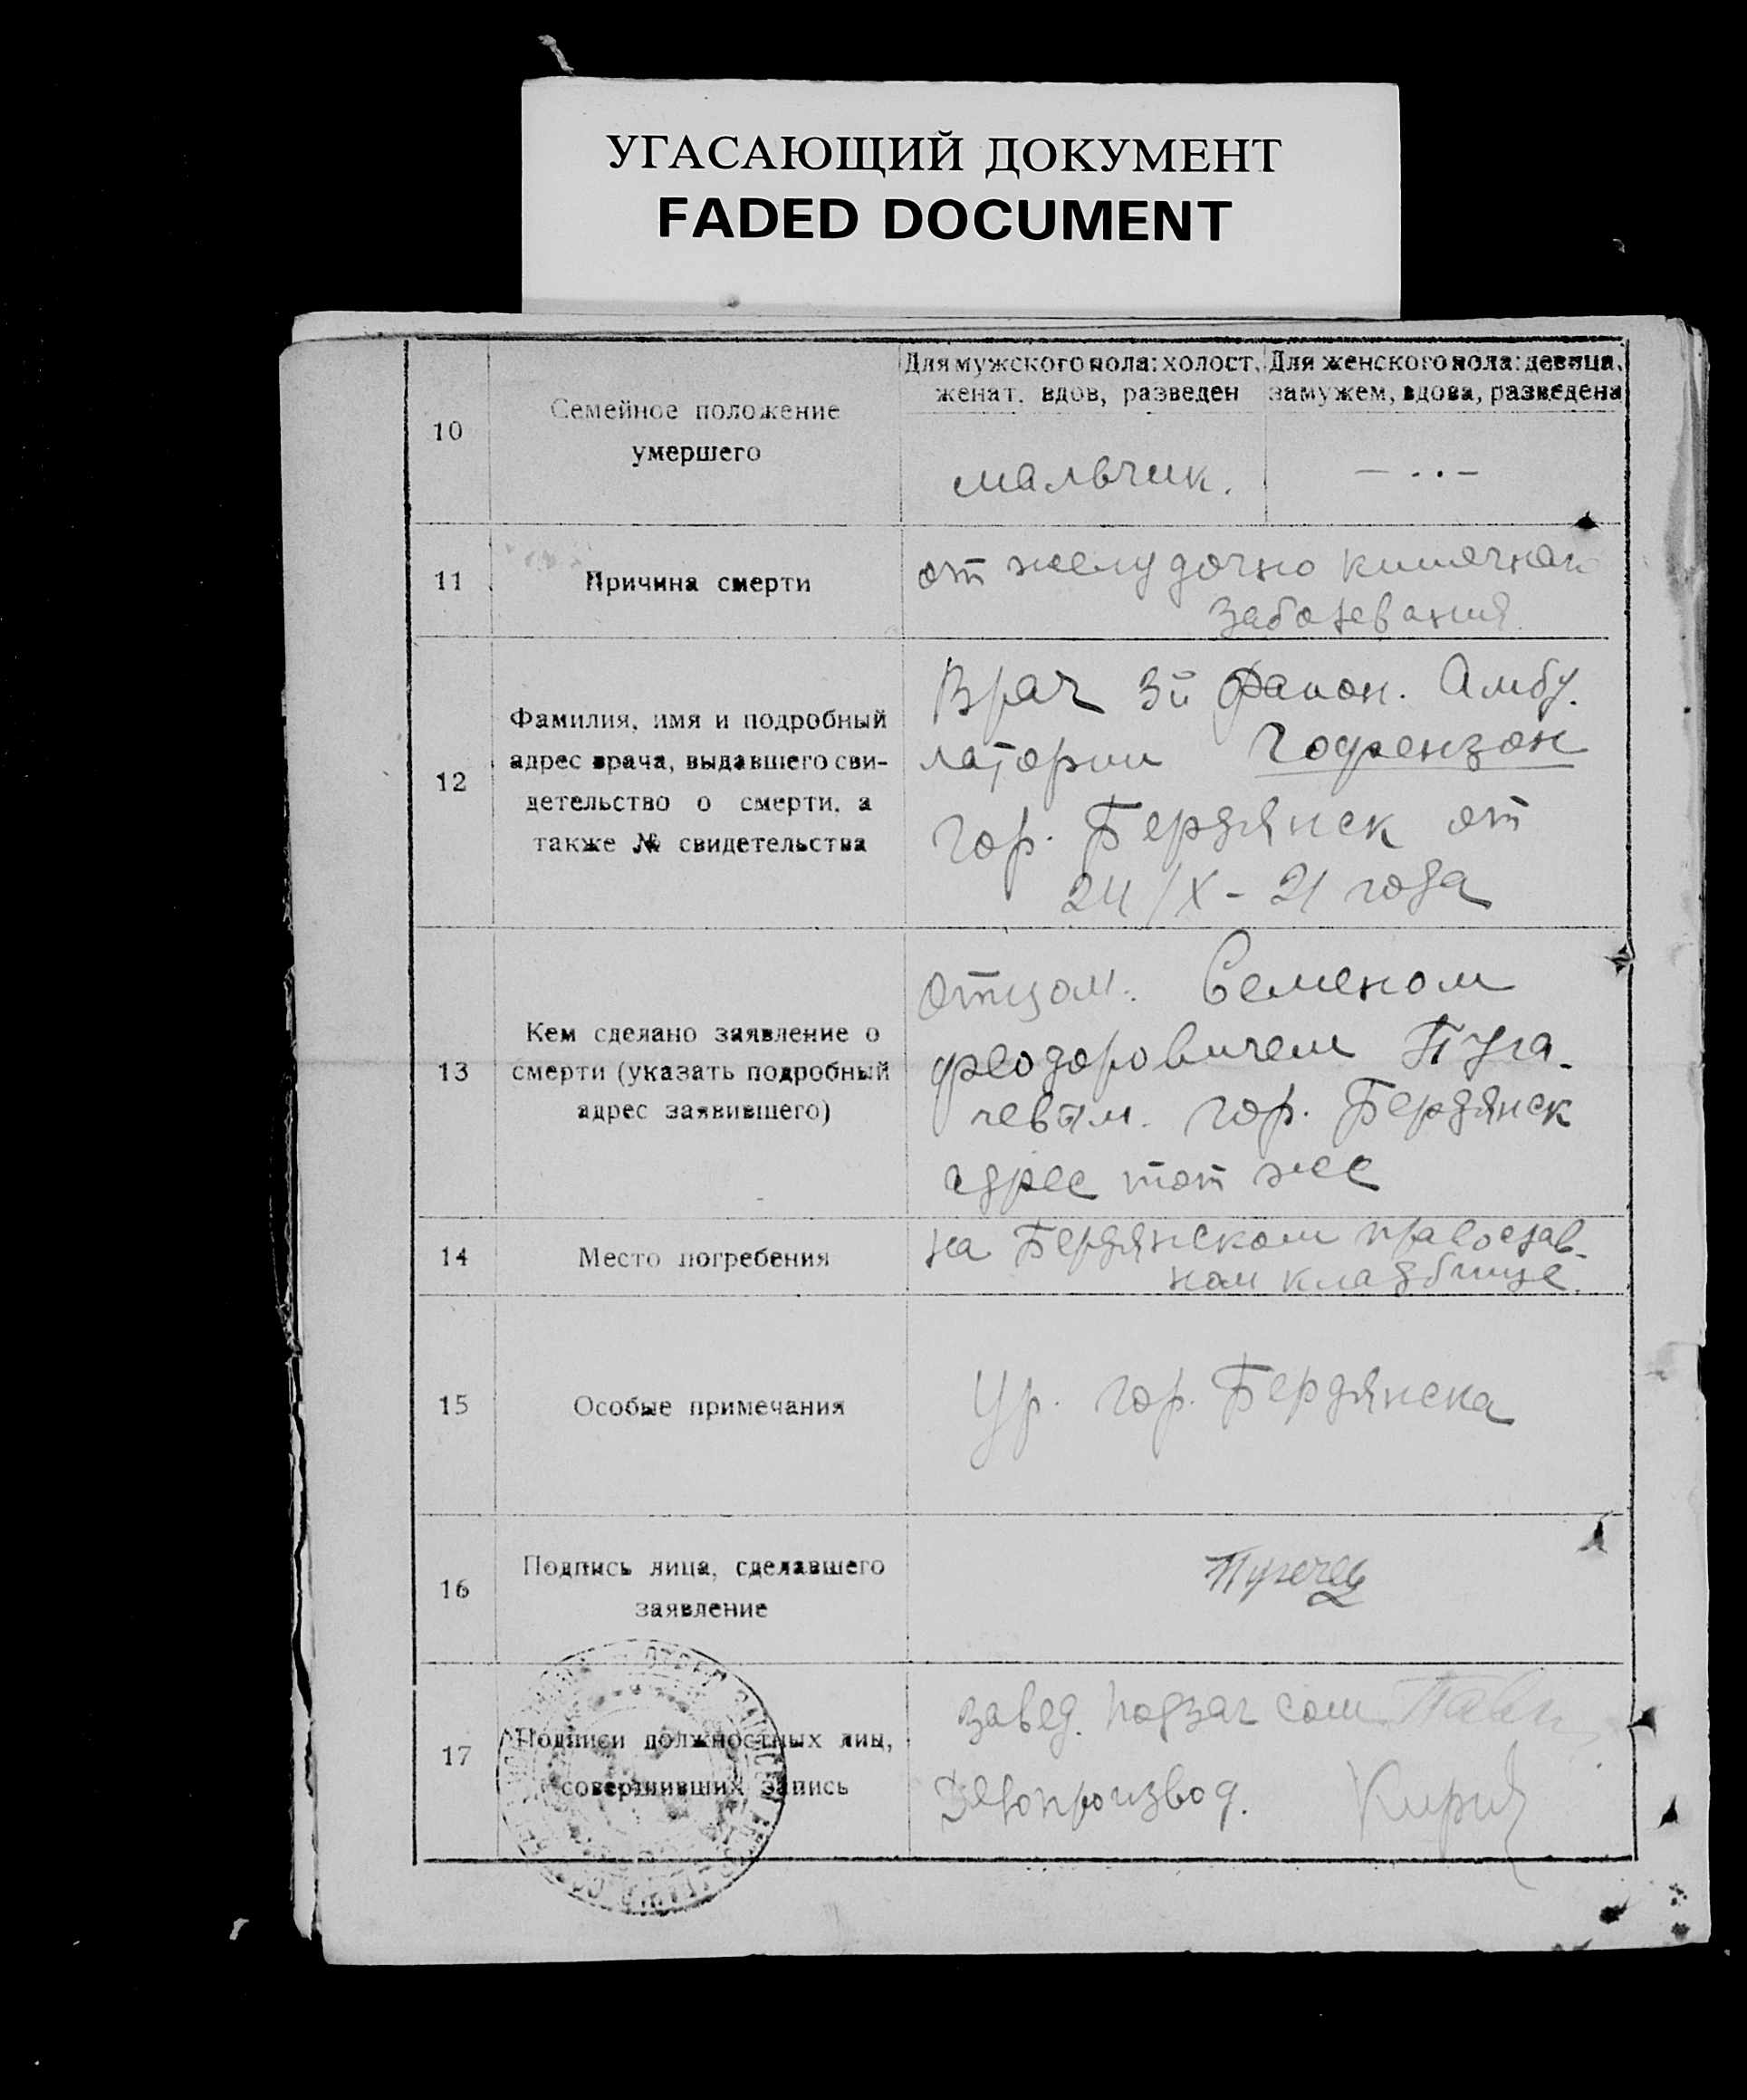 УГАСАЮЩИЙ ДОКУМЕНТ
FADED DOCUMENT
10
Семейное положение
умершего
Для мужского пола: холост,
женат, вдов, разведен
Для женского пола: девица,
замужем, вдова, разведена
мальчик.
— .. —
11
Причина смерти
от желудочно кишечнаго
заболевания.
12
Фамилия, имя и подробный
адрес врача, выдавшего сви-
детельство о смерти, а
также № свидетельства
Врач 3й район. Амбу.
латории Гофензон
гор. Бердянск от
24/X - 21 года
13
Кем сделано заявление о
смерти (указать подробный
адрес заявившего)
отцом. Семеном
феодоровичем Пуга-
чевым. гор. Бердянск
адрес тот же
14
Место погребения
на Бердянском православ-
ном кладбище.
15
Особые примечания
Ур. гор. Бердянска
16
Подпись лица, сделавшего
заявление
17
Подписи должностных лиц,
совершивших запись
завед. подзаг сом
Делопроизвод.